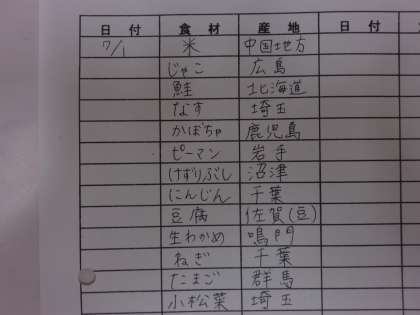 日 付 食 材 産 地 日 付
7/1 米 中国地方
じゃこ 広島
鮭 北海道
なす 埼玉
かぼちゃ 鹿児島
ピーマン 岩手
けずりぶし 沼津
にんじん 千葉
豆腐 佐賀(豆)
生わかめ 鳴門
ねぎ 千葉
たまご 群馬
小松菜 埼玉